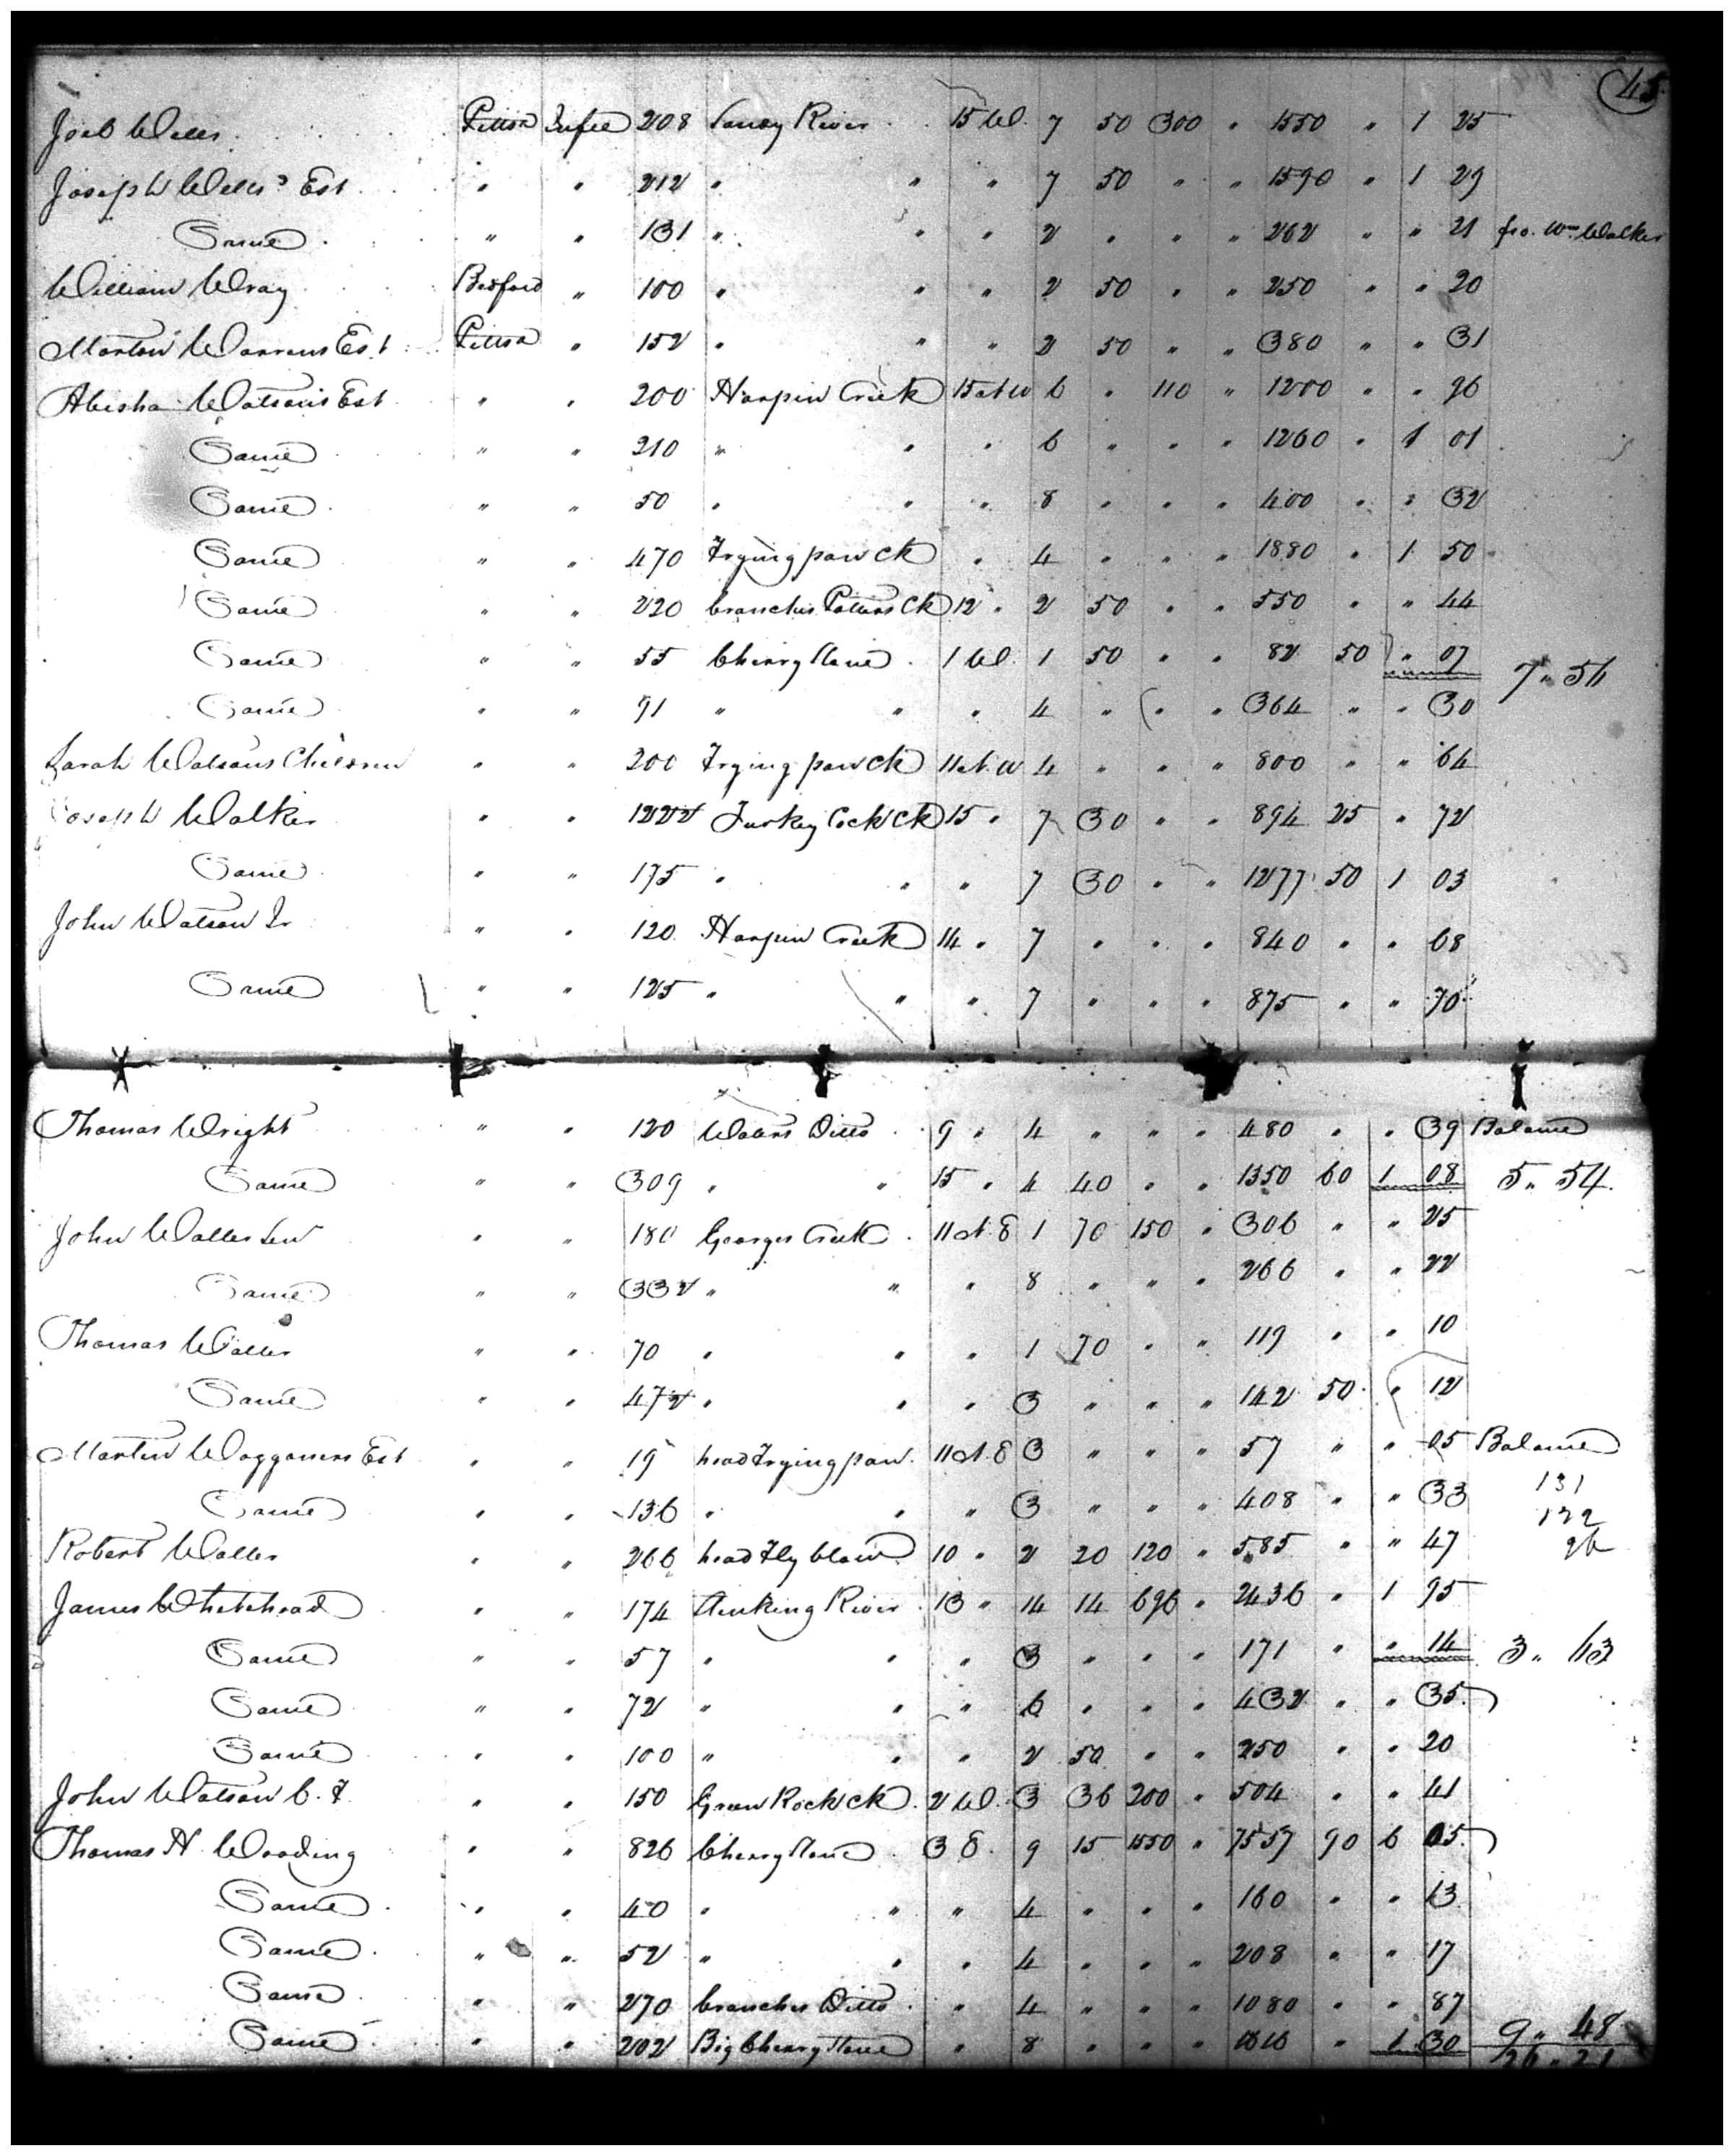 45
Joel Weir Pittsa Infee 208 Sandy River 15 W. 7 50 300 " 1550 " 1 25
Joseph Wells Est " " 212 " " " 7 50 " " 1590 " 1 29
Same " " 131 " " " 2 " " " 262 " " 21 fro. Wm Walker
William Wray Bedford " 100 " " " 2 50 " " 250 " " 20
Martin Warrens Est Pittsa " 152 " " " 2 50 " " 380 " " 31
Abisha Watsons Est " " 200 Harpin Creek 15 N W 6 " 110 " 1200 " " 96
Same " " 210 " " " 6 " " " 1260 " 1 01
Same " " 50 " " " 8 " " " 400 " " 32
Same " " 470 Frying pan Ck " 4 " " " 1880 " 1 50
Same " " 220 branches Potters Ck 12 " 2 50 " " 550 " " 44
Same " " 55 Cherrystone 1 W. 1 50 " " 82 50 " 07 7 " 56
Same " " 91 " " " 4 " " " 364 " " 30
Sarah Watsons Children " " 200 Frying pan Ck 11 N. W 4 " " " 800 " " 64
Joseph Walker " " 122½ Turkey Cock Ck 15 " 7 30 " " 894 25 " 72
Same " " 175 " " " 7 30 " " 1277 50 1 03
John Watson Jr " " 120 Harpin Creek 14 " 7 " " " 840 " " 68
Same " " 125 " " " 7 " " " 875 " " 70
Thomas Wright " " 120 Waters Ditto 9 " 4 " " " 480 " " 39 Balance
Same " " 309 " " 15 " 4 40 " " 1350 60 1 08 5 " 54
John Waller Sen " " 180 Georges Creek 11 N. E 1 70 150 " 306 " " 25
Same " " 33 2 " " " 8 " " " 266 " " 22
Thomas Waller " " 70 " " " 1 70 " " 119 " " 10
Same " " 47½ " " " 3 " " " 142 50 " 12
Martin Waggoners Est " " 19 head Frying pan 11 N. E 3 " " " 57 " " 05 Balance
Same " " 136 " " " 3 " " " 408 " " 33 131
132
Robert Waller " " 266 head Fly blow 10 " 2 20 120 " 585 " " 47 96
James Whitehead " " 174 Stinking River 13 " 14 14 696 " 2436 " 1 95
Same " " 57 " " " 3 " " " 171 " " 14 3 " 63
Same " " 72 " " " 6 " " " 432 " " 35
Same " " 100 " " " 2 50 " " 250 " " 20
John Watson C. F " " 150 Green Rock Ck 2 W. 3 36 200 " 504 " " 41
Thomas H. Wooding " " 826 Cherrystone 3 E. 9 15 1550 " 7557 90 6 05
Same " " 40 " " " 4 " " " 160 " " 13
Same " " 52 " " " 4 " " " 208 " " 17
Same " " 270 branches Ditto " 4 " " " 1080 " " 87
Same " " 202 Big Cherrystone " 8 " " " 1616 " 1 30 9 " 48
26 " 21